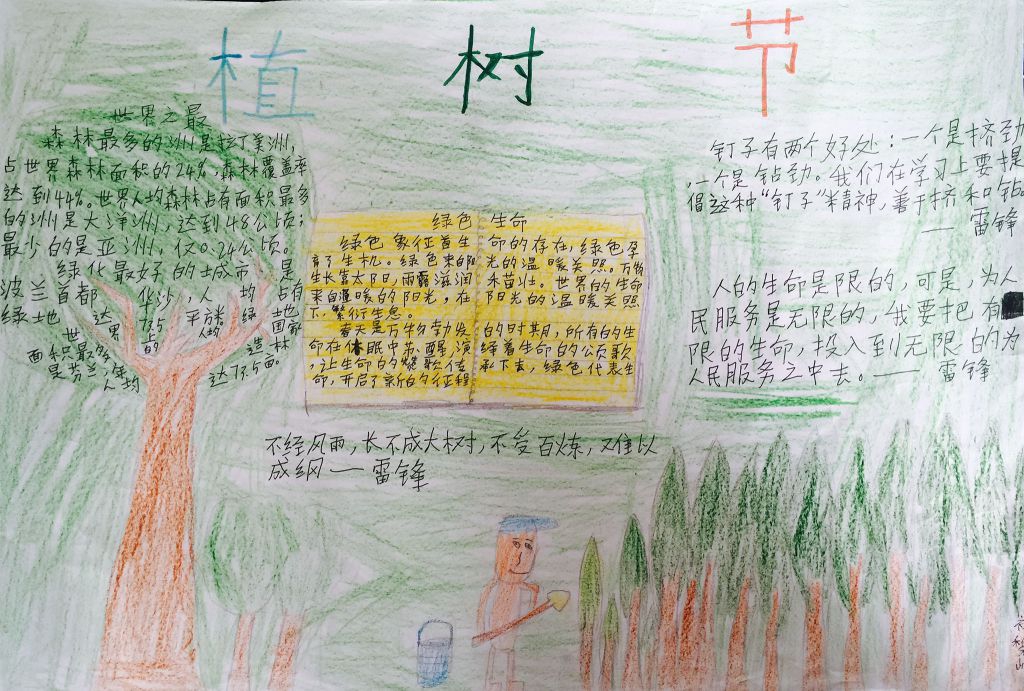 植树节
世界之最
森林最多的洲是拉丁美洲,
占世界森林面积的24%,森林覆盖率
达到44%。世界人均森林占有面积最多
的洲是大洋洲,达到48公顷;
最少的是亚洲,仅0.24公顷。
绿化最好的城市是
波兰首都华沙,人均占有
绿地达73.5平方米绿地
世界上的人均造林国家
面积最多的
是芬兰,每
人均达73.5亩。
绿色生命
绿色象征着生命的存在,绿色孕
育了生机。绿色来自阳光的温暖关照。万物
生长靠太阳,雨露滋润禾苗壮。世界的生命
来自温暖的阳光,在阳光的温暖关照
下,繁衍生息。
春天是万物勃发的时其月,所有的生
命在休眠中苏醒,演绎着生命的颂歌
,让生命的赞歌传承下去,绿色代表生
命,开启了新的征程
钉子有两个好处:一个是挤劲
,一个是钻劲。我们在学习上要提
倡这种“钉子”精神,善于挤和钻
—— 雷锋
人的生命是限的,可是,为人
民服务是无限的,我要把有
限的生命,投入到无限的为
人民服务之中去。—— 雷锋
不经风雨,长不成大树,不受百炼,难以
成纲 —— 雷锋